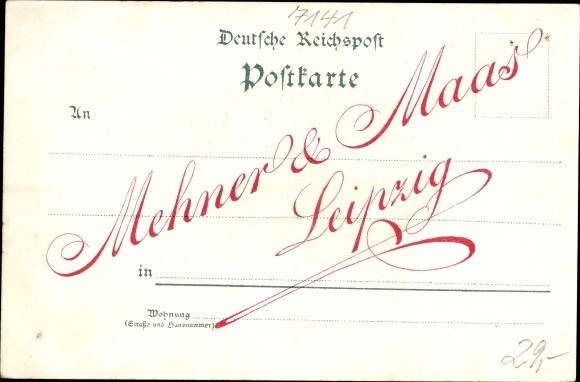 7141
Deutsche Reichspost
Postkarte
An
Mehner & Maas
Leipzig
in
Wohnung
(Straße und Hausnummer)
29,-